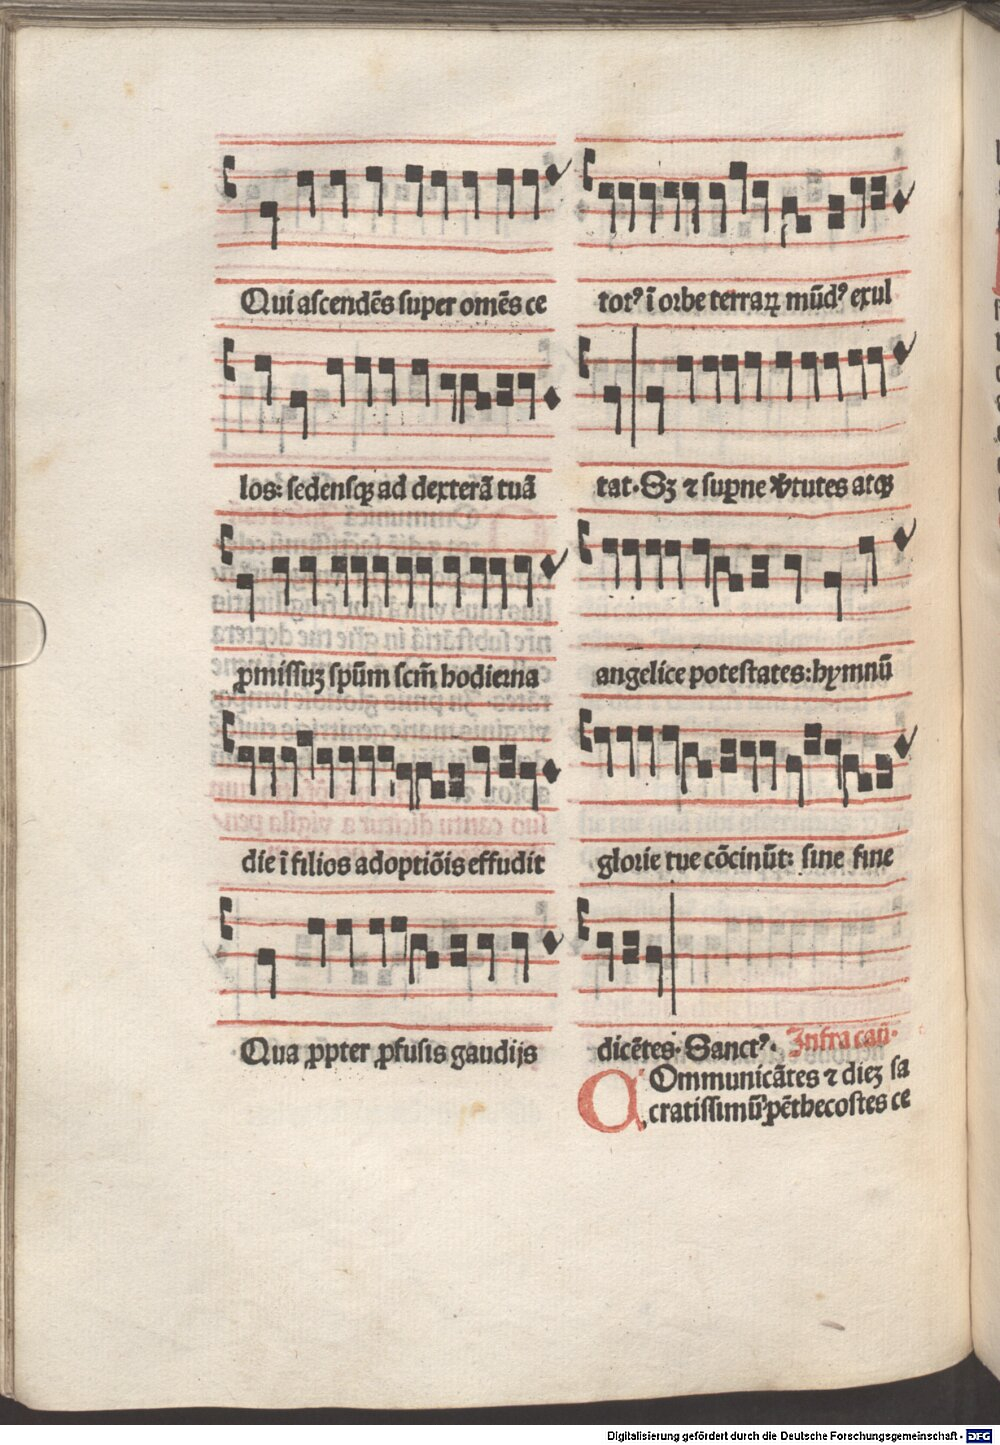 Qui ascendēs super omēs ce
los: sedensqȝ ad dexterā tuā
ꝓmissuȝ spūm scm̄ hodierna
die ī filios adoptiōis effudit
Qua ꝓpter ꝓfusis gaudijs
totꝰ ī orbe terraꝝ mūdꝰ exul
tat. Sȝ ⁊ suꝑne v̓tutes atqȝ
angelice potestates: hymnū
glorie tue cōcinūt: sine fine
dicētes. Sanctꝰ. Infra cań.
COmmunicātes ⁊ dieȝ sa
cratissimū pēthecostes ce
Digitalisierung gefördert durch die Deutsche Forschungsgemeinschaft - DFG